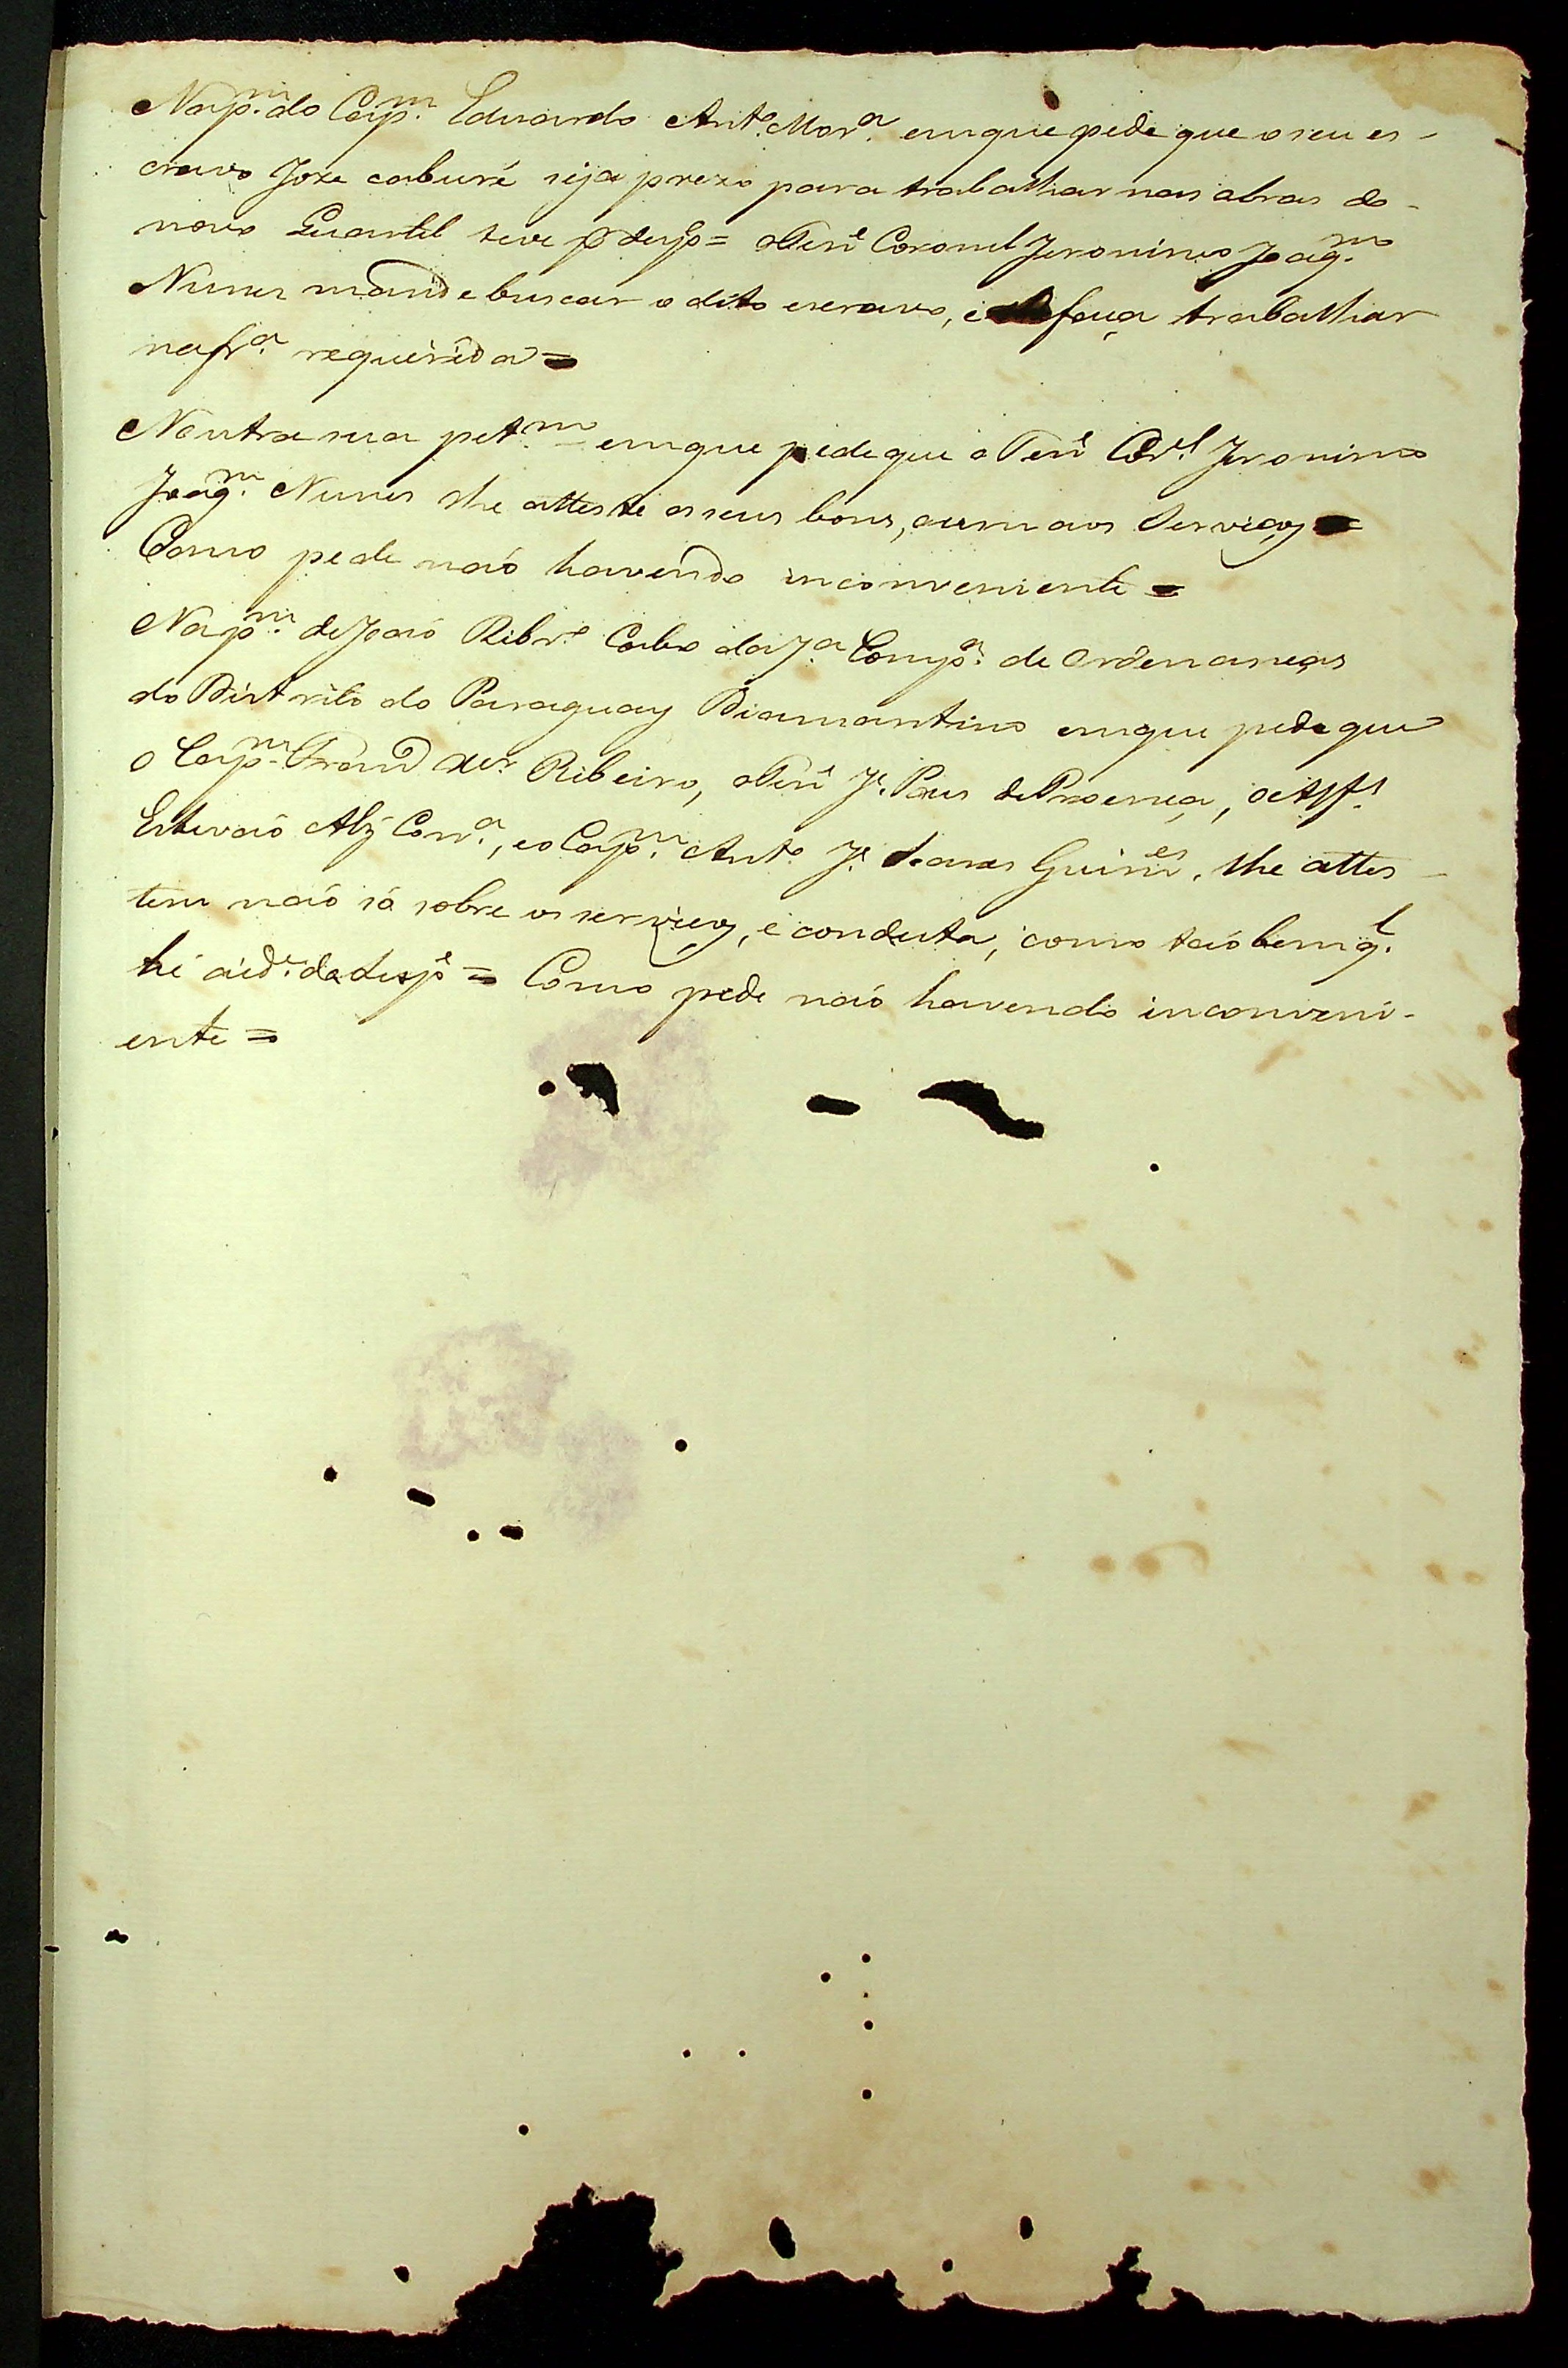 Nap.m do Cap.m Eduardo Ant.o Mor.a emque pede que o seu es-
cravo Joze caburé seja prezo para trabalhar nas obras do
novo Quartel teve p desp.o = O Ten.e Coronel Jeronimo Joaq.m
Nunes mande buscar o dito escravo, e faça trabalhar
naf.a requerida =
Noutra sua pet.m emque pede que o Ten.e Cor.el Jeronimo
Joaq.m Nunes lhe atteste os seus bons, ou maos Serviços =
Como pede naõ havendo inconveniente =
Nap.m de Joaõ Ribr.o Cabo da 7.a Comp.a de Ordenanças
do Distrito do Paraguay Diamantino emque pede que
o Cap.m Ribeiro, o Ten.e J.e Paes de Proença, o Alf.s
Estevaõ Alz Corr.a, e o Cap.m Ant.o J.e Soares Guim.es, lhe attes-
tem naõ só sobre os serviços, e conduta, como taõbem q.l
hé a id.e do Sup.e = Como pede naõ havendo inconveni-
ente =